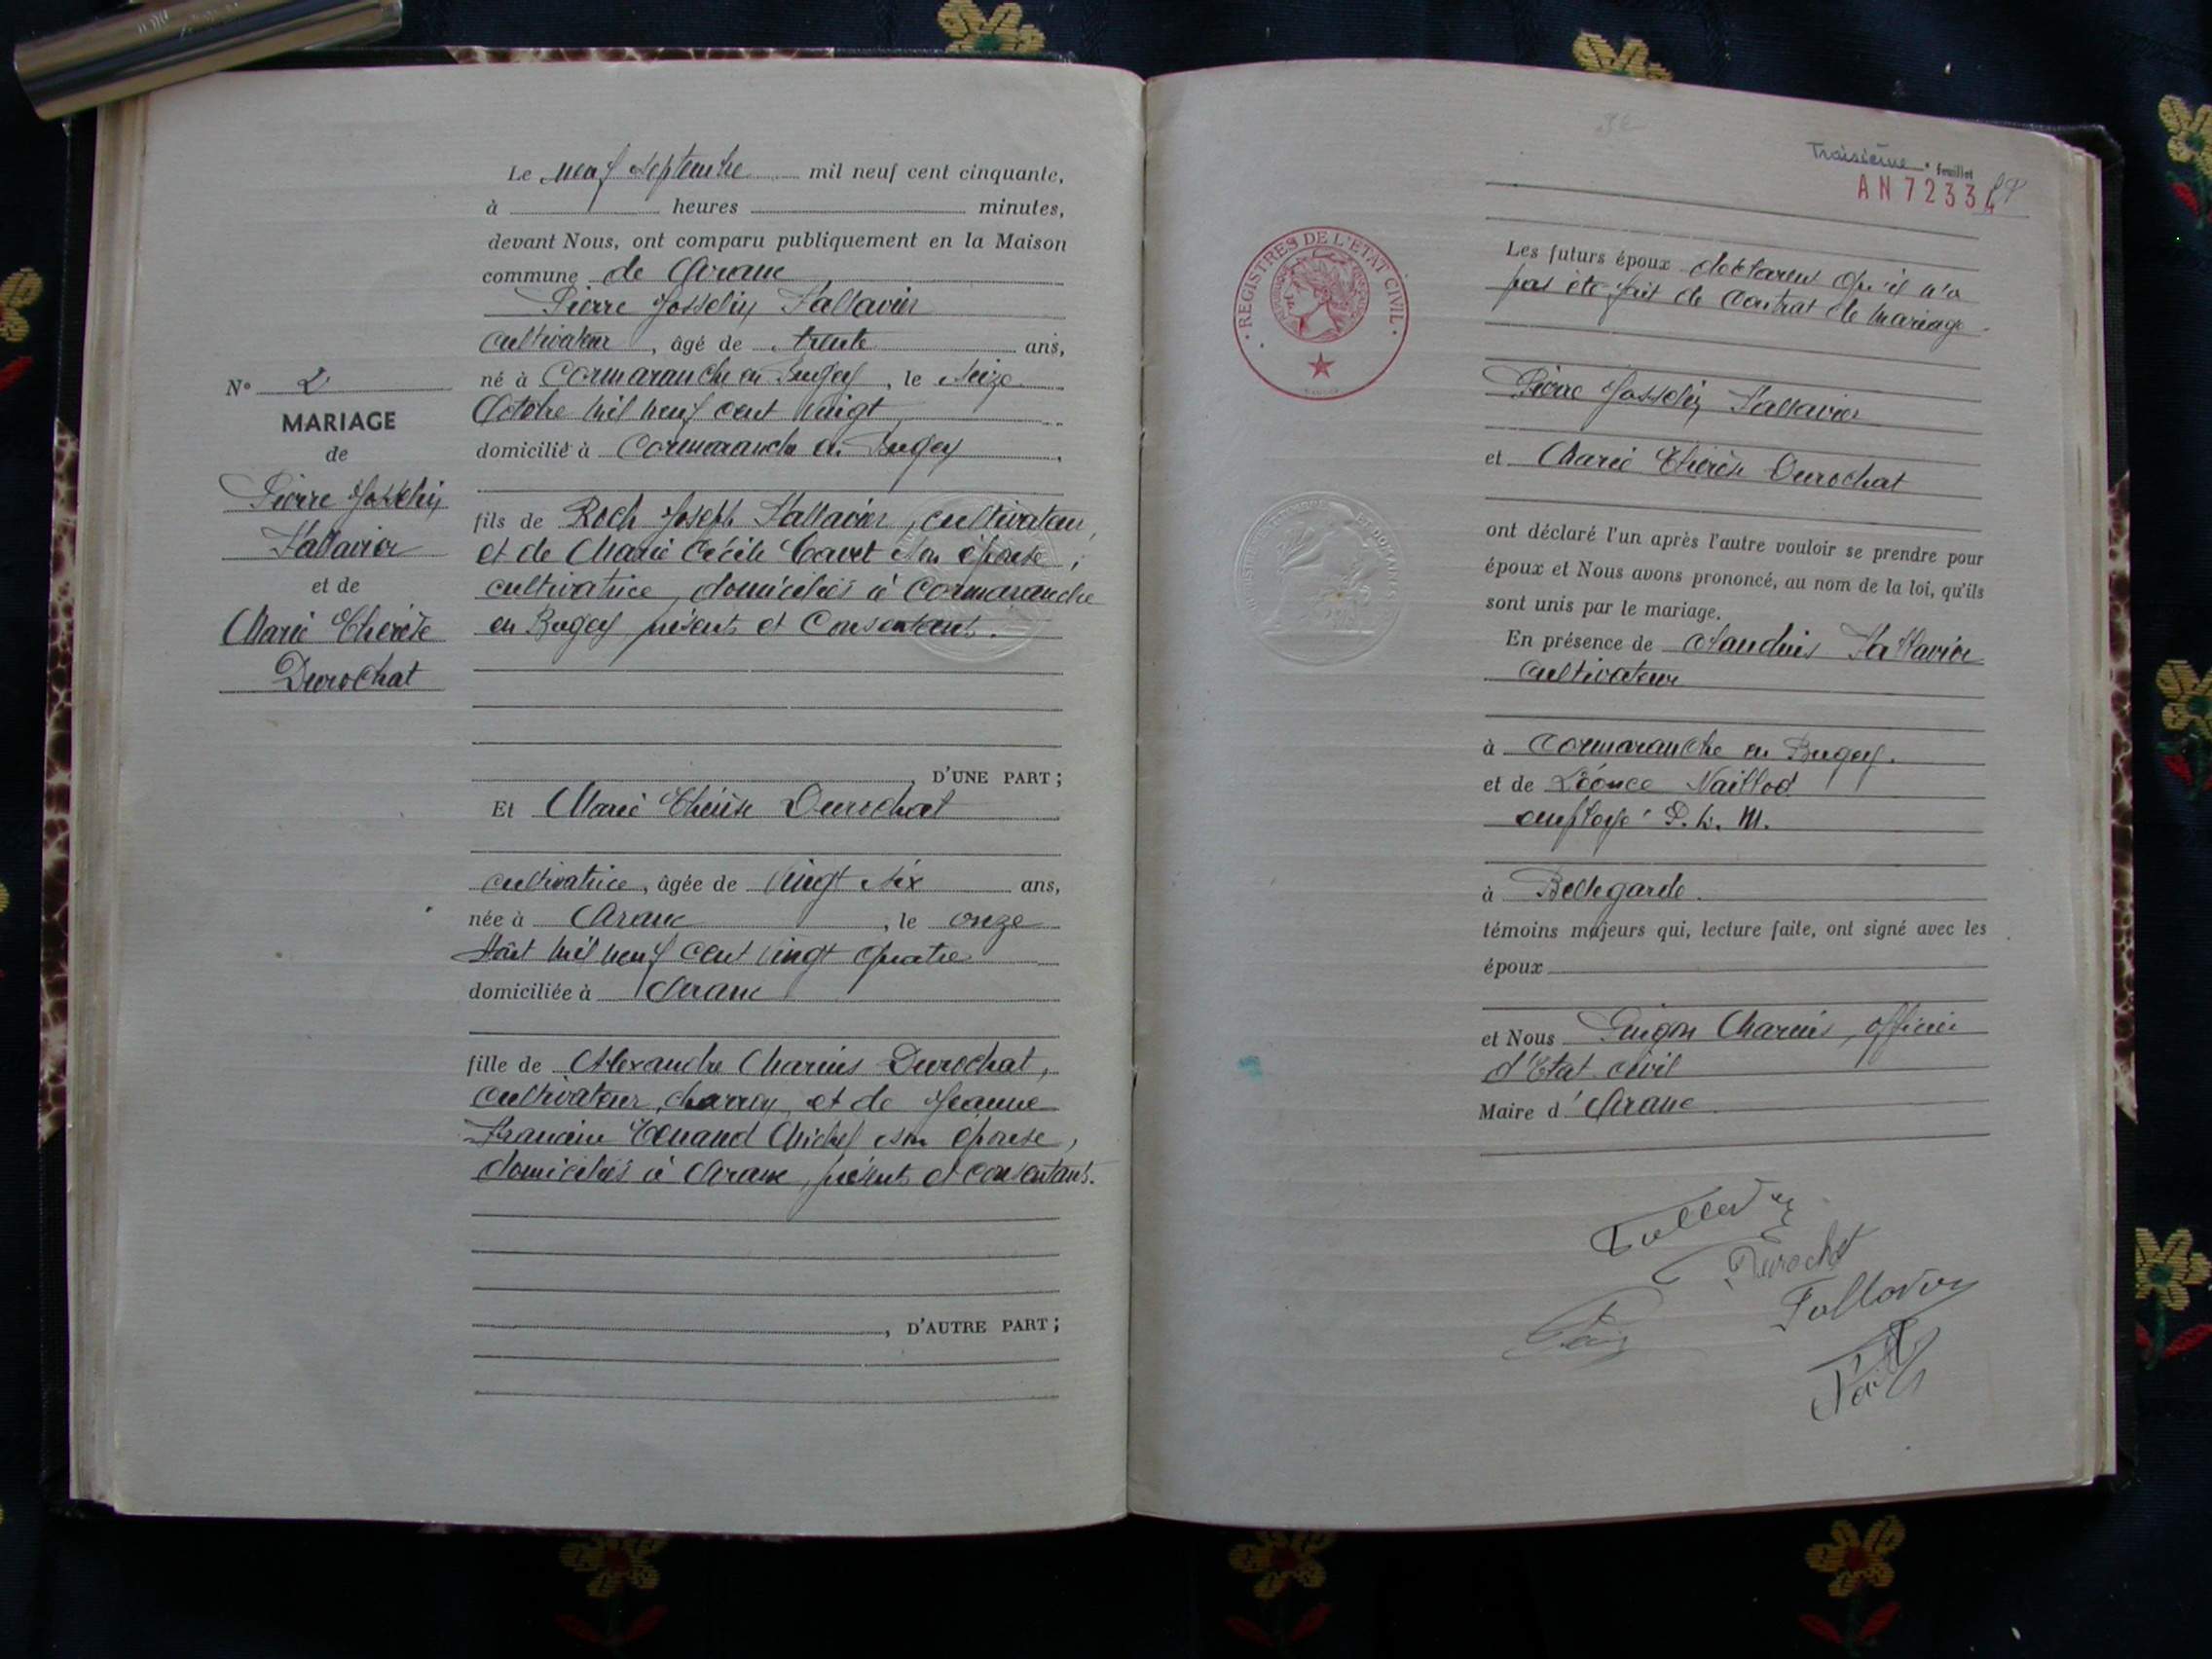 Le neuf septembre mil neuf cent cinquante,
à heures minutes,
devant Nous, ont comparu publiquement en la Maison
commune de Aranc
Pierre Josselin Tallavier
cultivateur, âgé de trente ans,
né à Cormaranche en Bugey, le seize
Octobre mil neuf cent vingt
domicilié à Cormaranche en Bugey
fils de Roch Joseph Tallavier, cultivateur,
et de Marie Cécile son épouse,
cultivatrice, domiciliés à Cormaranche
en Bugey présents et consentants.
D'UNE PART ;
Et Marie Thérèse Durochat
cultivatrice, âgée de vingt six ans,
née à Aranc, le onze
Août mil neuf cent vingt quatre
domiciliée à Aranc
fille de Alexandre Marius Durochat,
cultivateur, charron, et de Jeanne
Francine Tenand Michel son épouse,
domiciliés à Aranc, présents et consentants.
, D'AUTRE PART ;
N° 2
MARIAGE
de
Pierre Josselin
Tallavier
et de
Marie Thérèse
Durochat
Troisième feuillet
AN 7233
REGISTRES DE L'ETAT CIVIL
Les futurs époux déclarent qu'il n'a
pas été fait de contrat de mariage
Pierre Josselin Tallavier
et Marie Thérèse Durochat
ont déclaré l'un après l'autre vouloir se prendre pour
époux et Nous avons prononcé, au nom de la loi, qu'ils
sont unis par le mariage.
En présence de Claudius Tallavier
cultivateur
à Cormaranche en Bugey.
et de Léonce Naillod
employé P. L. M.
à Bellegarde.
témoins majeurs qui, lecture faite, ont signé avec les
époux
et Nous Guigon Marius, officier
d'Etat civil
Maire d'Aranc
Tallavier
Durochat
Tallavier